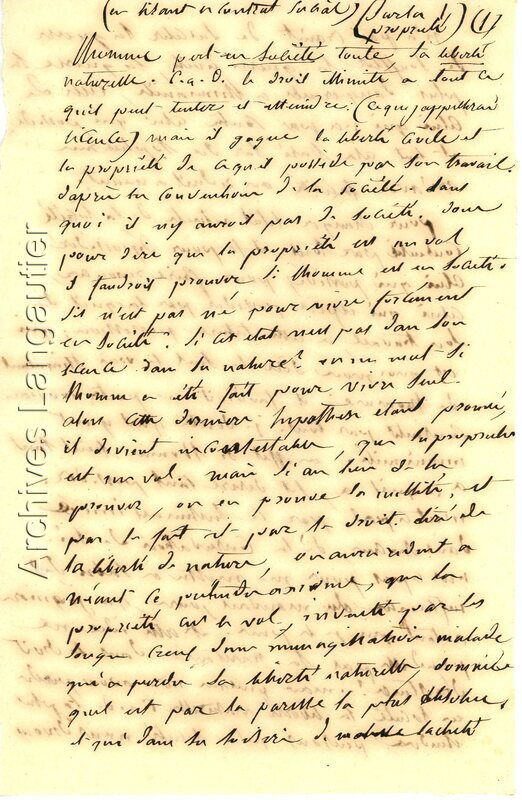 (en lisant le contrat social) (sur la propriété) (1)
l'homme perd en société toute sa liberté
naturelle. C.a.D. le droit illimité a tout ce
qu'il peut tenter et atteindre. (ce que j'appellerai
licence) mais il gagne la liberté civile et
la propriété de ce qu'il possede par son travail.
d'après les conventions de la société. sans
quoi il n'y auroit pas de société. donc
pour dire que la propriété est un vol
il faudroit prouver si l'homme est en société.
s'il n'est pas né pour vivre forcément
en société. Si cet etat n'est pas dans son
dans sa nature? en un mot si
l'homme a été fait pour vivre seul.
alors cette dernière hypothese etant prouvée
il devient incontestable, que la propriété
est un vol. mais si au lieu de la
prouver, on en prouve la nullité, et
par le fait et par le droit. tiré de
la liberté de nature, on aura réduit a
néant ce prétendu axiome, que la
propriété est le vol, inventé par
creux d'une imagination malade
qui a perdu sa liberté naturelle, dominée
qu'il est par la paresse la plus absolue,
et qui dans sa de lacheté
Archives Langautier